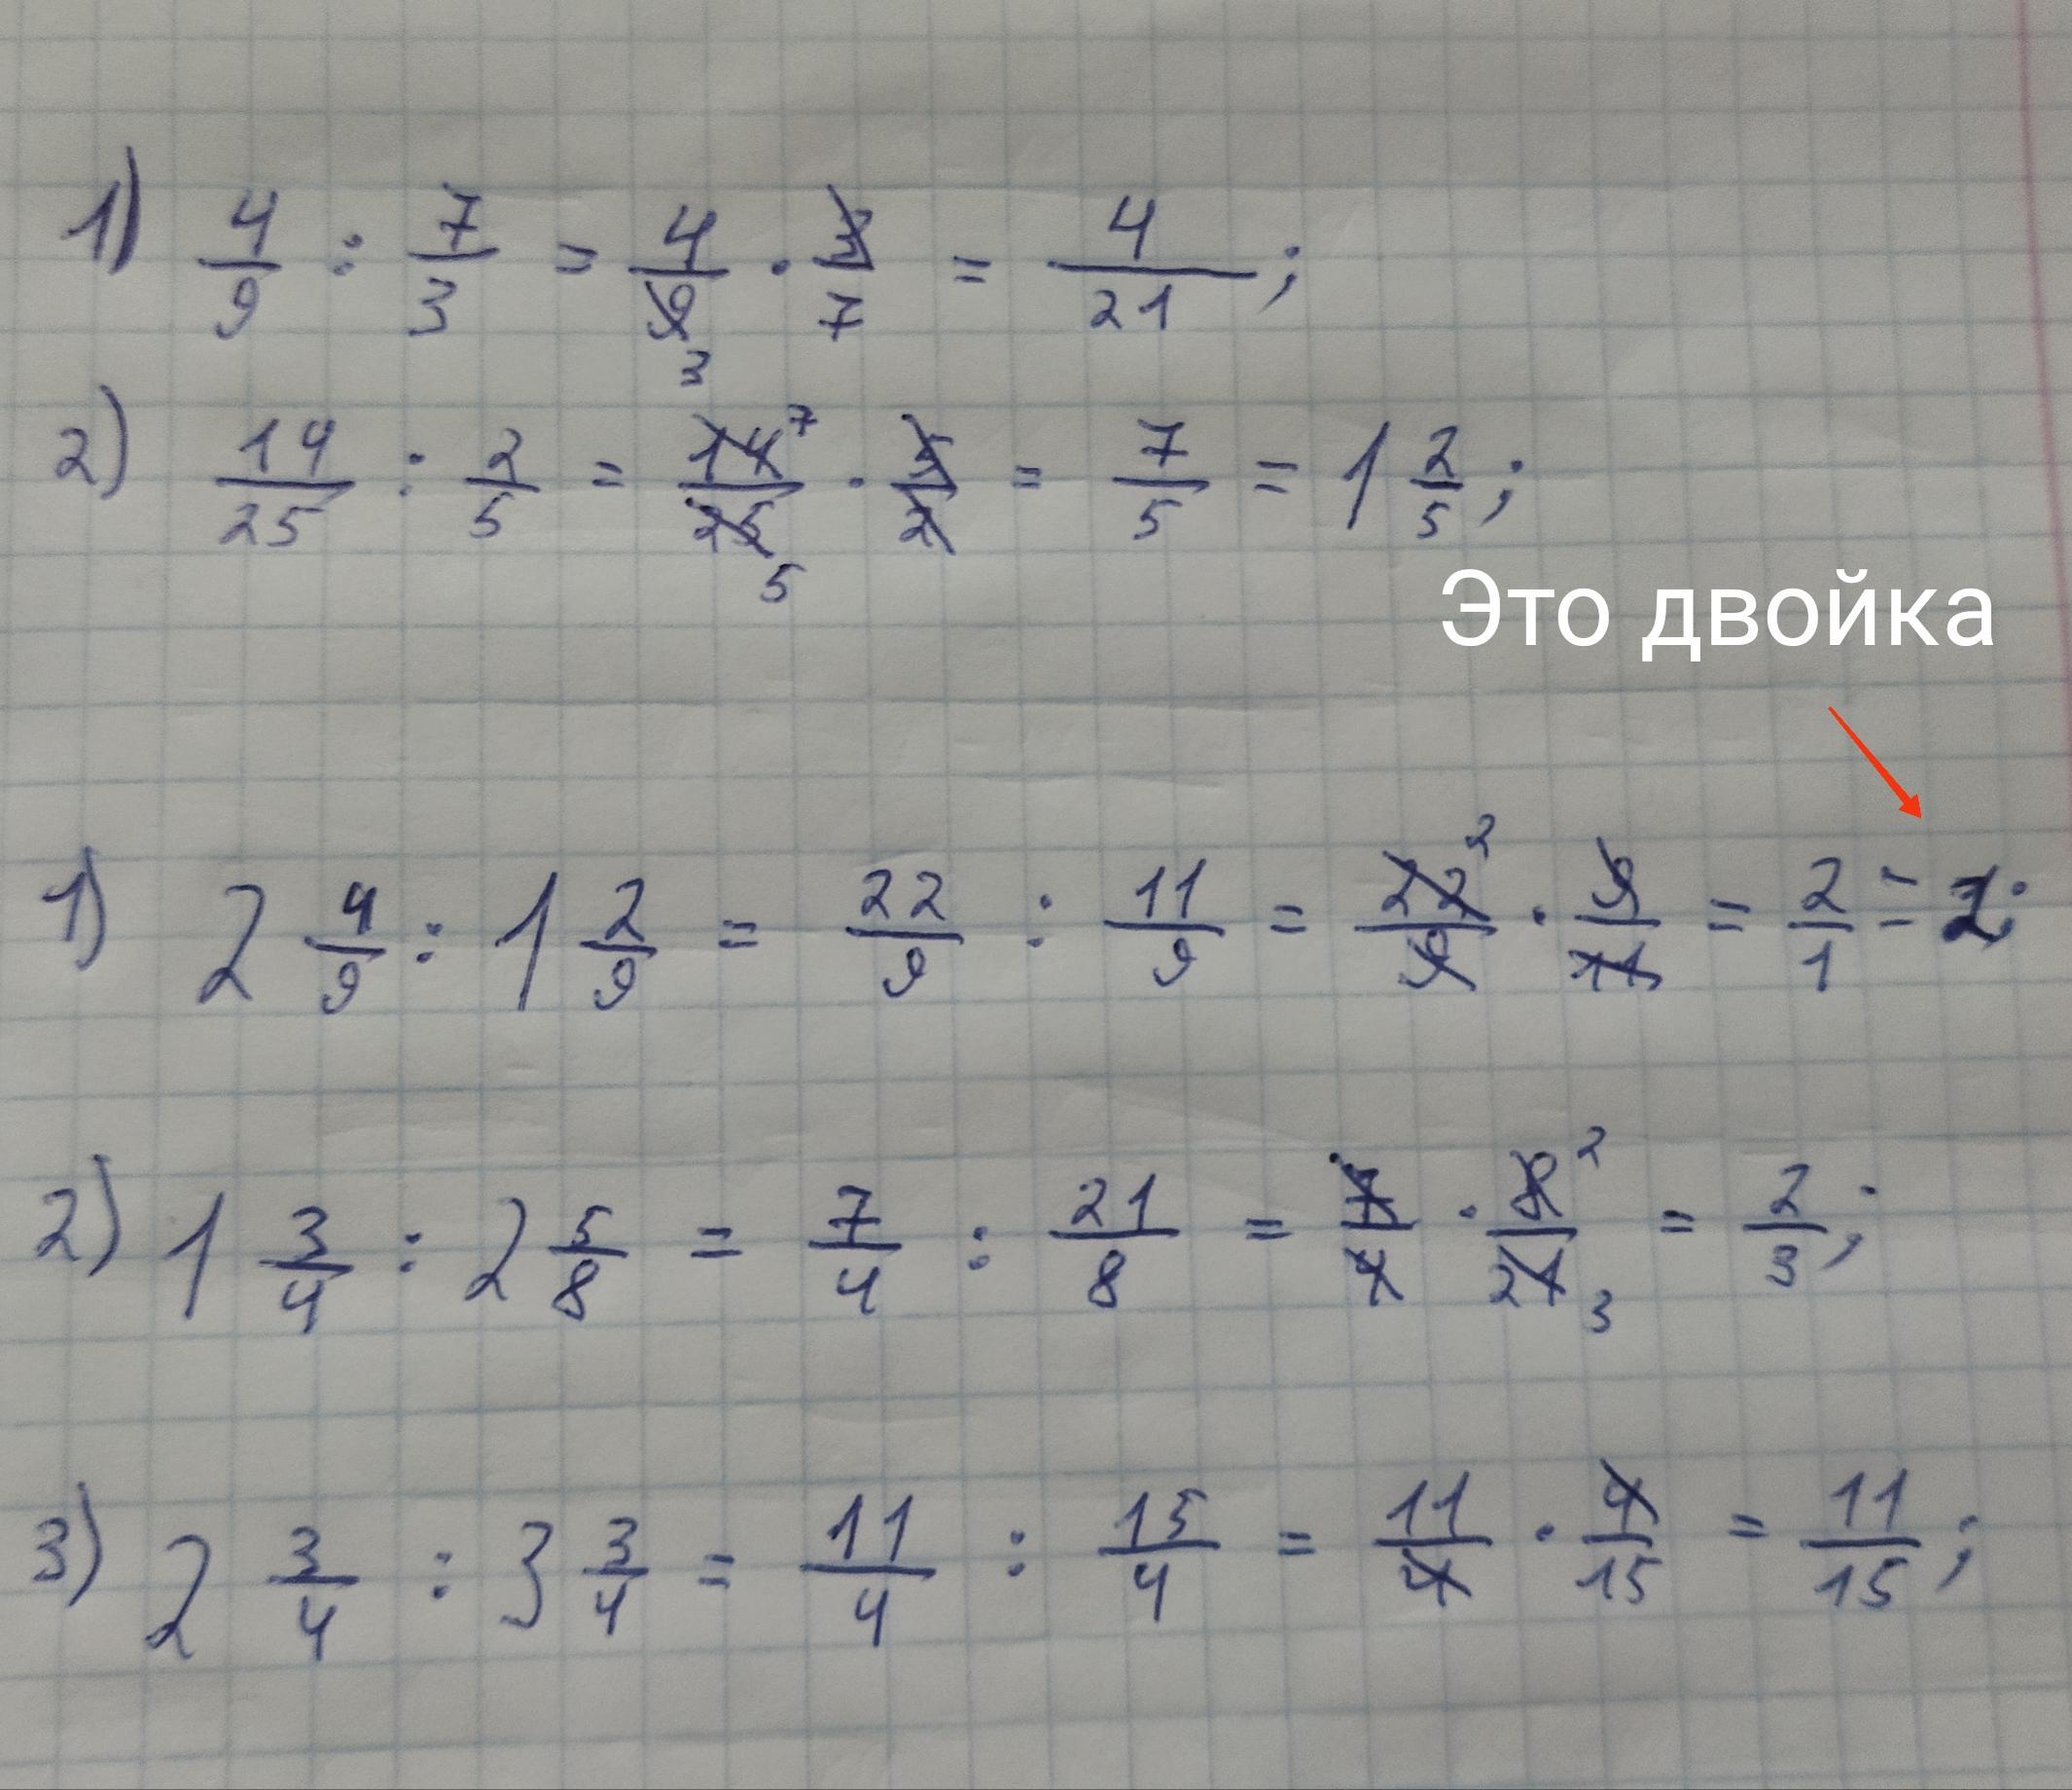 1) 4/9 : 7/3 = 4/9 3 · 3/7 = 4/21 ;
2) 14/25 : 2/5 = 14 7/25 5 · 5/2 = 7/5 = 1 2/5 ;
Это двойка
1) 2 4/9 : 1 2/9 = 22/9 : 11/9 = 22 2/9 · 9/11 = 2/1 = 2;
2) 1 3/4 : 2 5/8 = 7/4 : 21/8 = 7/4 · 8 2/21 3 = 2/3 ;
3) 2 3/4 : 3 3/4 = 11/4 : 15/4 = 11/4 · 4/15 = 11/15 ;